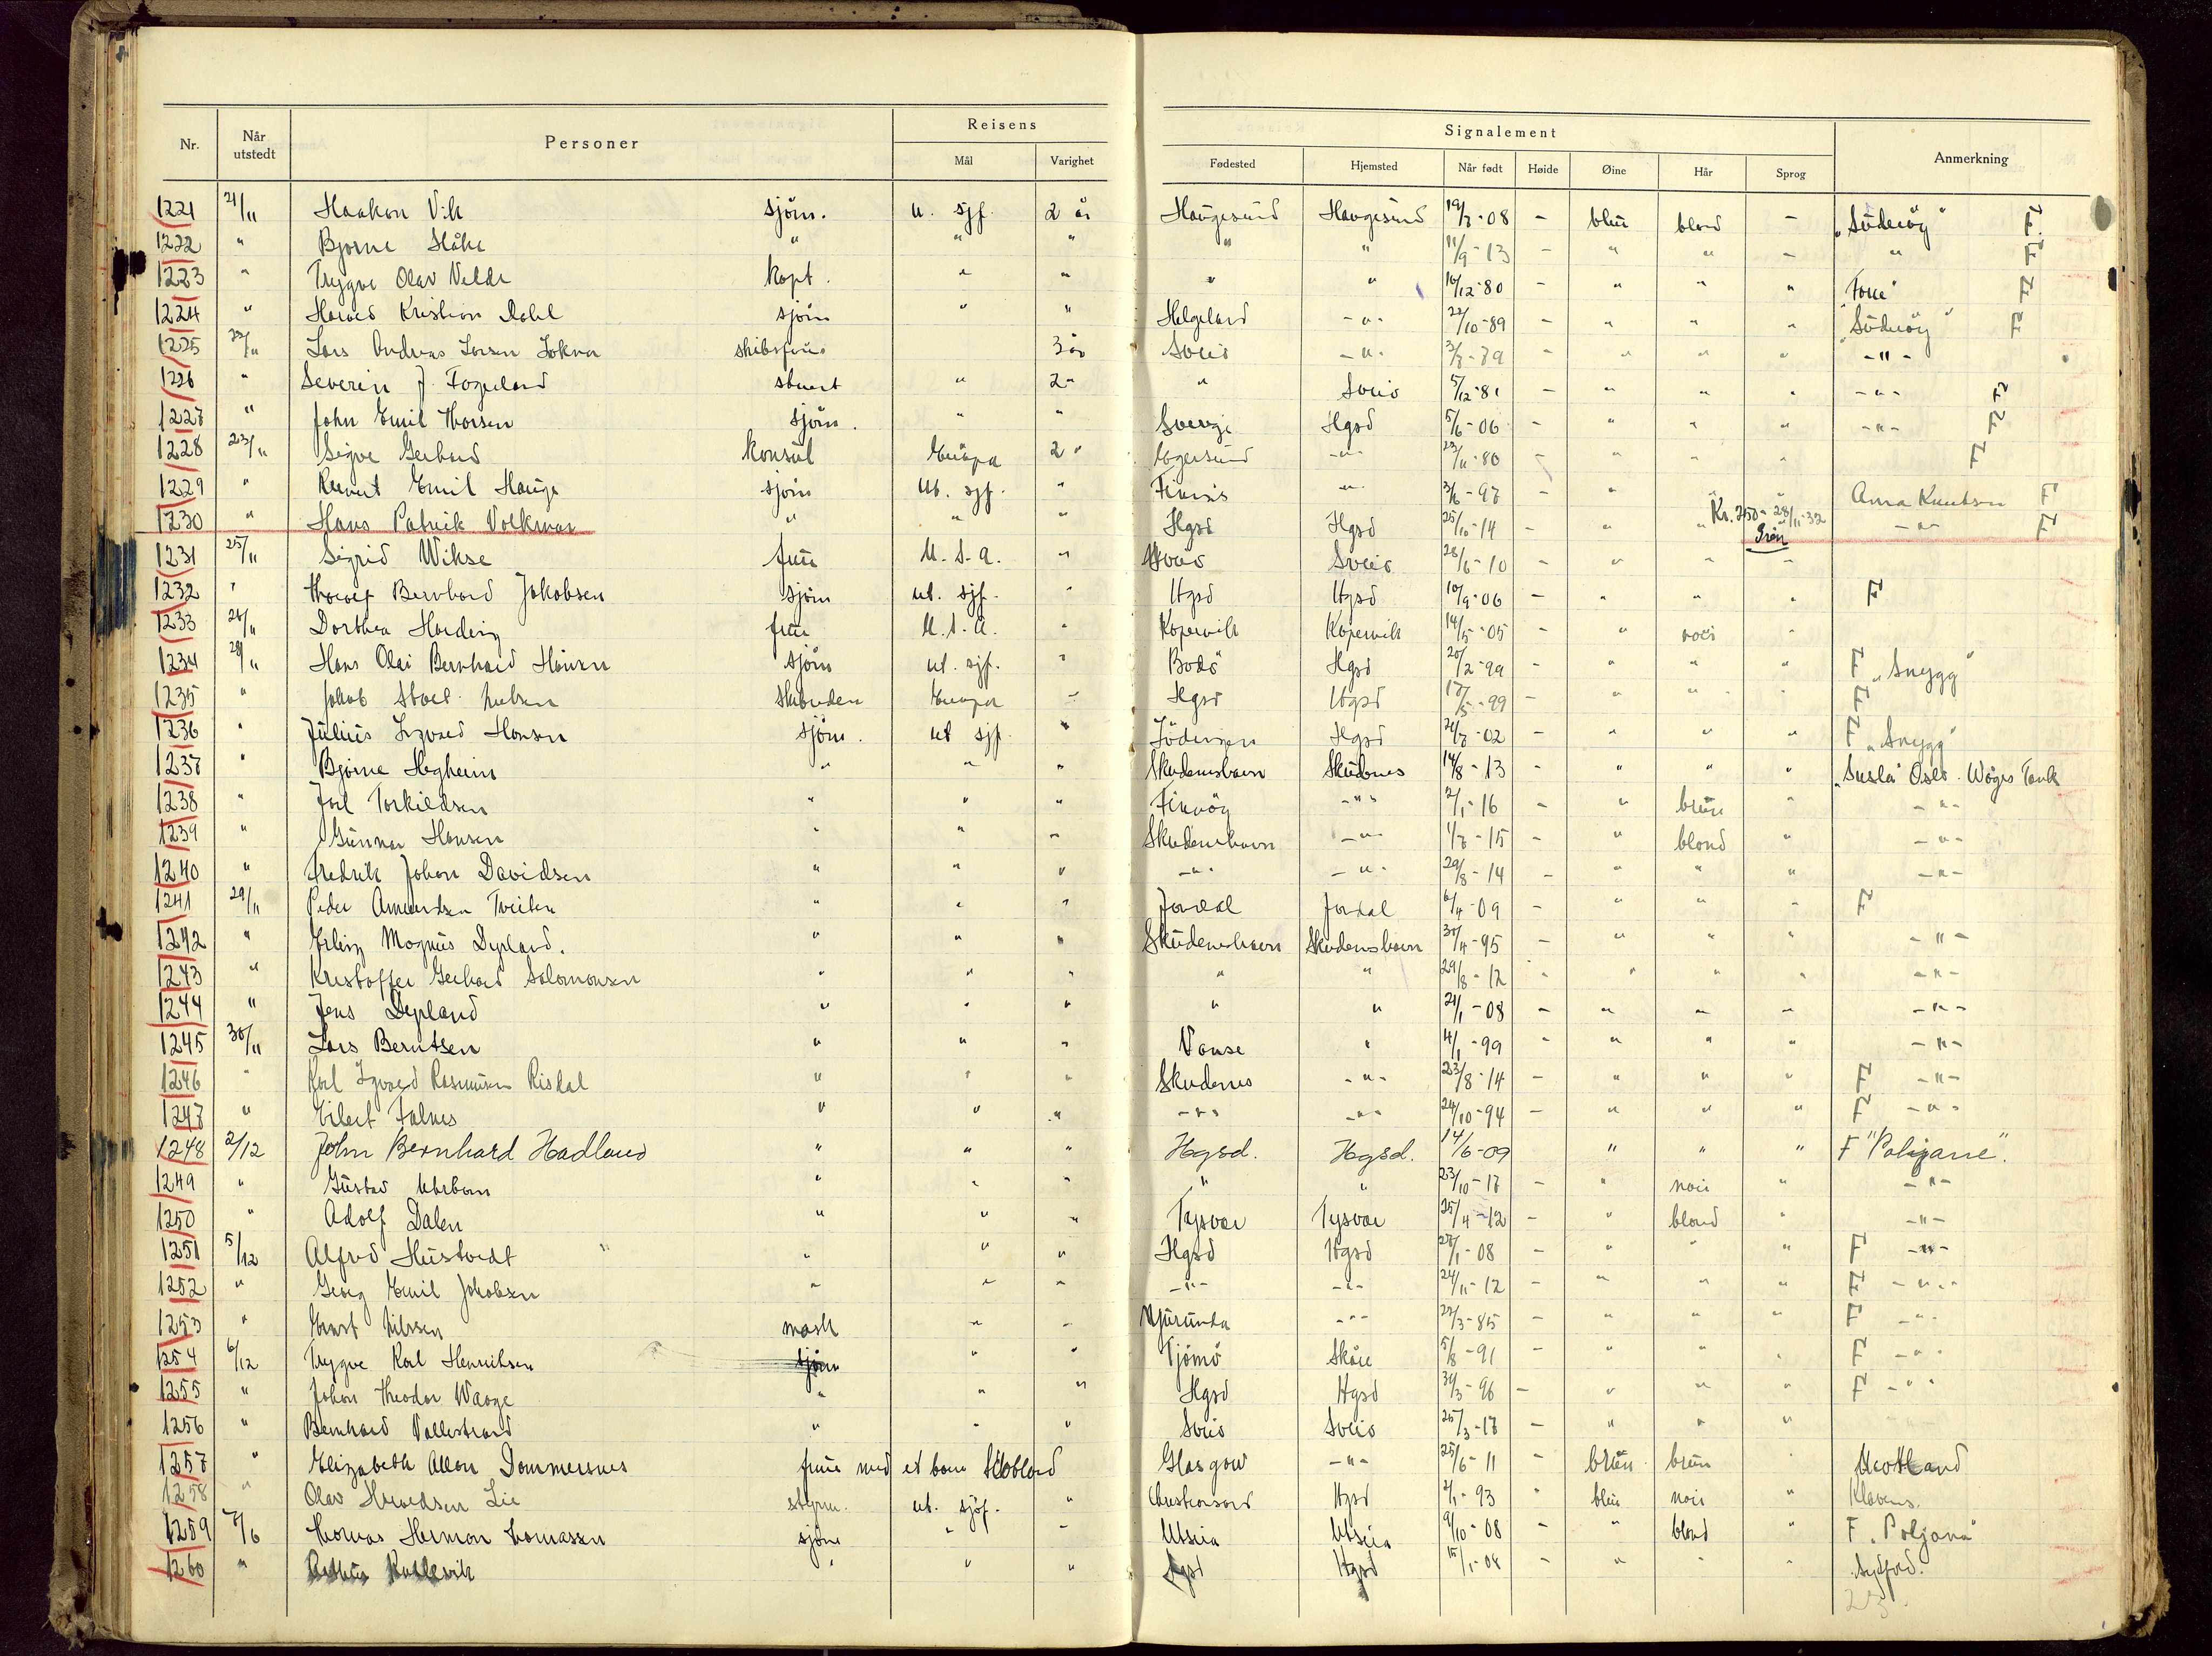 Nr. Når utstedt Personer Reisens Mål Varighet Signalement Fødested Hjemsted Når født Høide Øine Hår Sprog Anmerkning
1221 21/11 Haakon Vik sjöm. u. sjf. 2 år Haugesund Haugesund 19/7-08 - blü blond - „Söderöy" F.
1222 " Bjarne " " " " " 11/9-13 - " " - " F
1223 " Trygve Olav Velde kapt. " " " " 16/12-80 - " " " F
1224 " Harald Kristian Dahl sjöm " " Helgeland -"- 22/10-89 - " " " „Söderöy" F
1225 22/11 Lars Andreas Larsen 3 år Sveio -"- 3/7-79 - " " " -"-
1226 " Severin J. Fogeland stuert " 2 " " Sveio 5/12-81 - " " " -"- F
1227 " John Emil Thorsen sjöm. " " Sverge Hgsd 5/6-06 - " " " -"- F
1228 23/11 Sigve Gerhard konsul Europa 2 " Egersund -"- 23/11-80 - " " " F
1229 " Emil Hauge sjöm ut. sjf. " -"- 3/6-97 - " " " Anna Knutsen F
1230 " Hans Patrik Volkmar " " " Hgsd Hgsd 25/10-14 - " " Kr. 250 - 28/11-32 -"- F
1231 25/11 Sigrid Wikse frue U.S.A. " Sveio Sveio 28/6-10 - " " -
1232 " Thoralf Bernhard Jakobsen sjöm ut. sjf. " Hgsd Hgsd 10/9-06 - " " " F
1233 26/11 Dorthea Harding frue U.S.A. " Kopervik Kopervik 14/5-05 - " noir "
1234 29/11 Hans Olai Bernhard Hansen sjöm ut. sjf. " Bodö Hgsd 20/2-99 - " " " F „Snygg"
1235 " Jakob Stoel Nielsen Europa " Hgsd Hgsd 17/5-99 - " " " F
1236 " Julius Ingvald Hansen sjöm. ut sjf. " Hgsd 26/7-02 - " " " F „Snygg"
1237 " Bjarne Hegheim " " " Skudeneshavn Skudenes 14/8-13 - " " " „Susla" Oslo. Tank
1238 " Jarl Torkildsen " " " Finnöy -"- 2/1-16 - " brün " -"-
1239 " Gunnar Hansen " " " Skudeneshavn -"- 1/7-15 - " blond " -"-
1240 " Fredrik Johan Davidsen " " " -"- -"- 29/8-14 - " " " -"-
1241 29/11 Peder Amundsen Tveiten " " " Jondal Jondal 6/4-09 - " " - F
1242 " Erling Magnus Dypland. " " " Skudeneshavn Skudeneshavn 30/4-95 - " " " -"-
1243 " Kristoffer Gerhard Salomonsen " " " " " 29/8-12 - " " " -"-
1244 " Jens Dypland " " " " " 21/1-08 - " - - -"-
1245 30/11 Lars Berntsen " " " Vanse " 4/1-99 - " " " -"-
1246 " Karl Ingvald Rasmussen Risdal " " " Skudenes -"- 23/8-14 - " " " F -"-
1247 " Eilert Falnes " " " -"- -"- 24/10-94 - " " " F -"-
1248 2/12 John Bernhard Hadland " " " Hgsd. Hgsd. 14/6-09 " " " F "Poljane".
1249 " Gustav " " " " " 23/10-17 - " noir " -"-
1250 " Adolf Dalen " " " Tysvær Tysvær 25/4-12 - " blond " -"-
1251 5/12 Alfred Hustvedt " " " Hgsd Hgsd 27/1-08 - " " " F -"-
1252 " Georg Emil Jakobsen " " " -"- -"- 24/11-12 - " " " F -"-
1253 " Ernst Nilssen mask " " Njurunda -"- 27/3-85 - " " " F -"-
1254 6/12 Trygve Karl Henriksen sjöm " " Tjömö Skåre 5/8-91 - " " " F -"-
1255 " Johan Theodor Waage " " " Hgsd Hgsd 30/3-96 - " " " F -"-
1256 " Bernhard Vallestrand " " " Sveio Sveio 25/3-17 - " " "
1257 " Elizabeth Allan Dommersnes frue med et barn Glasgow -"- 25/6-11 - brün brün " Skotland
1258 " Olav Lie styrm. ut. sjöf. " Hgsd 2/1-93 - blü noir " Klavens.
1259 7/6 Thomas Herman Thomassen sjöm " " Utsira Utsira 9/10-08 - " blond " F „Poljana"
1260 " " " " Hgsd Hgsd 15/1-08 - " " "
23.